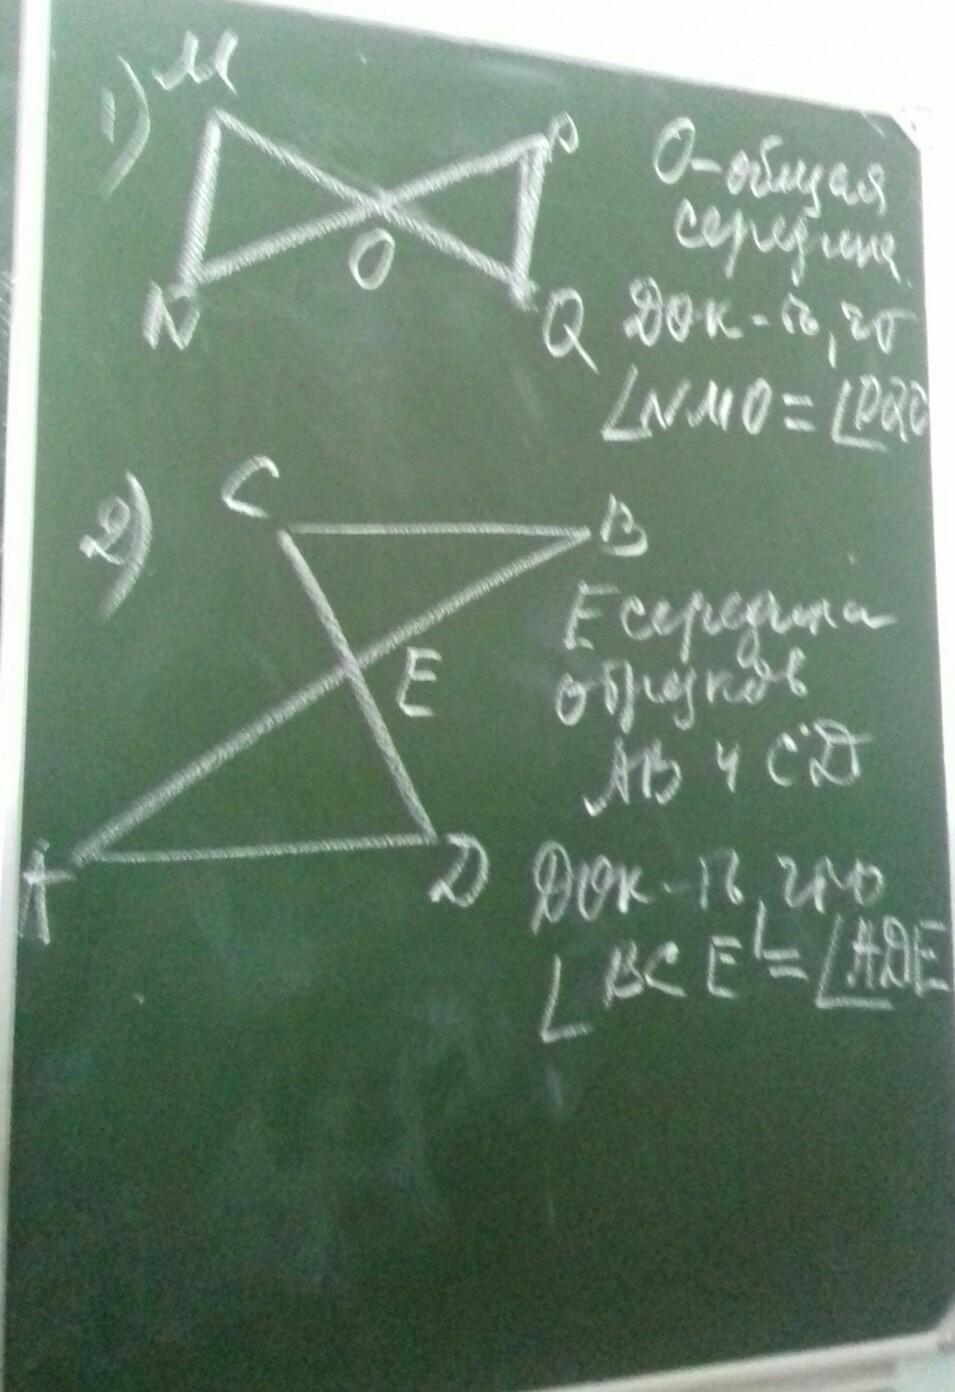 1) M
P
O
N
Q
O-общая
середина
Док-ть, что
∠NMO = ∠PQO
2)
C
B
E
A
D
E середина
отрезков
AB и CD
Док-ть, что
∠BCE = ∠ADE